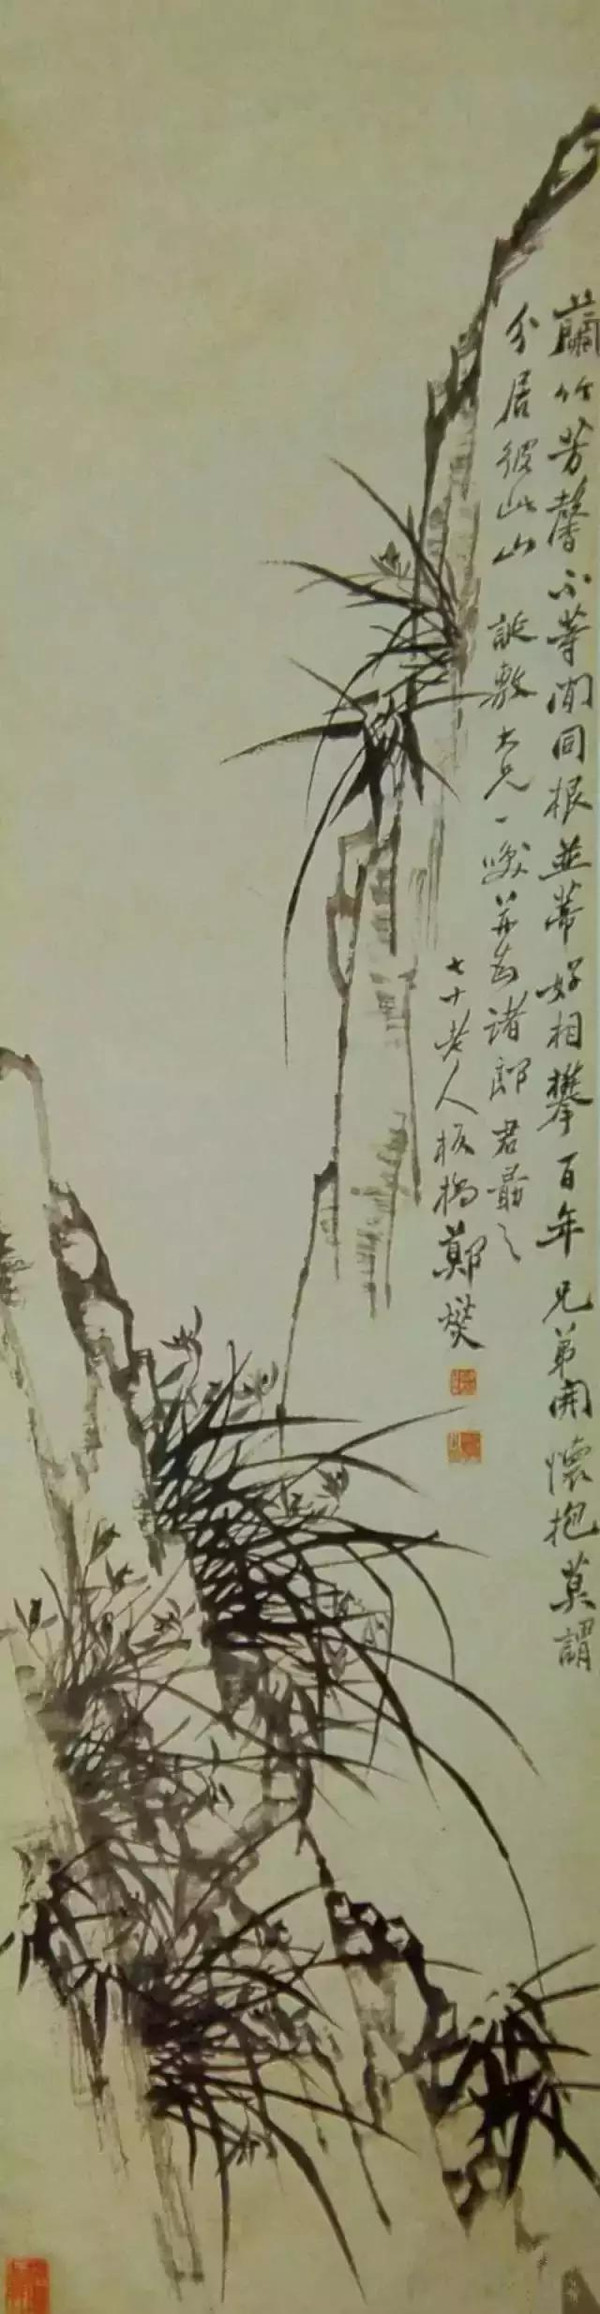 蘭竹芳馨不等閒同根並蒂好相攀百年兄弟開懷抱莫謂
分居彼此山 誕敷大兄一笑并與諸郎君勗之
七十老人板橋鄭燮